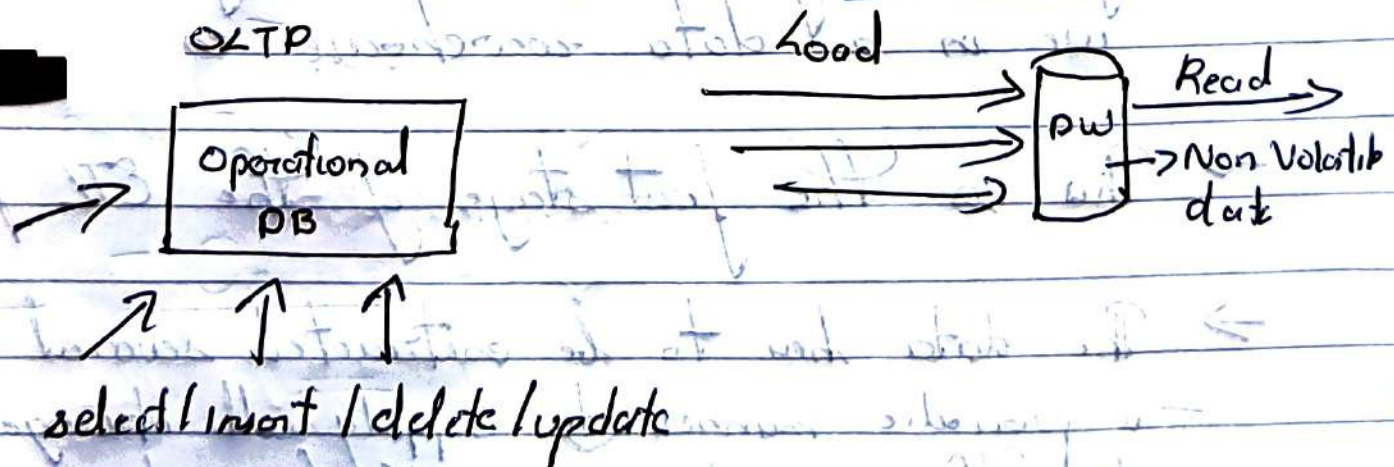 OLTP
Load
Operational
DB
DW
Read
Non Volatile
data
select / insert / delete / update